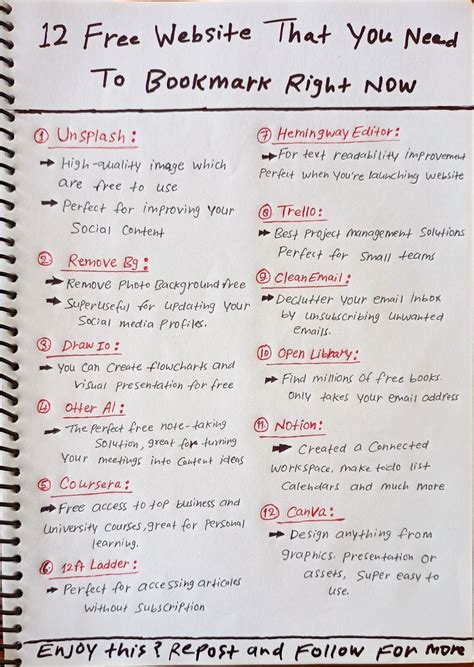 12 Free Website That You Need
To Bookmark Right Now
① Unsplash:
➡ High-quality image which
are free to use
➡ Perfect for improving your
Social Content
② Remove Bg:
➡ Remove Photo Background free
➡ Superuseful for updating your
Social media Profiles.
③ Draw Io:
➡ You can Create flowcharts and
visual Presentation for free
④ Otter AI:
➡ The perfect free note-taking
Solution, great for turning
your meetings into Content ideas
⑤ Coursera:
➡ Free access to top business and
university courses, great for Personal
learning.
⑥ 12ft Ladder:
➡ Perfect for accessing articales
without Subscription
⑦ Hemingway Editor:
➡ For text readability improvement
Perfect when you're launching website
⑧ Trello:
➡ Best Project management Solutions
Perfect for Small teams
⑨ CleanEmail:
➡ Declutter your email Inbox
by unsubscribing unwanted
emails.
⑩ Open Library:
➡ Find millions of free books.
Only takes your email address
⑪ Notion:
➡ Created a Connected
workspace, make todo list
Calendars and much more
⑫ Canva:
➡ Design anything from
graphics, presentation or
assets, super easy to
use.
Enjoy this? Repost and Follow For more